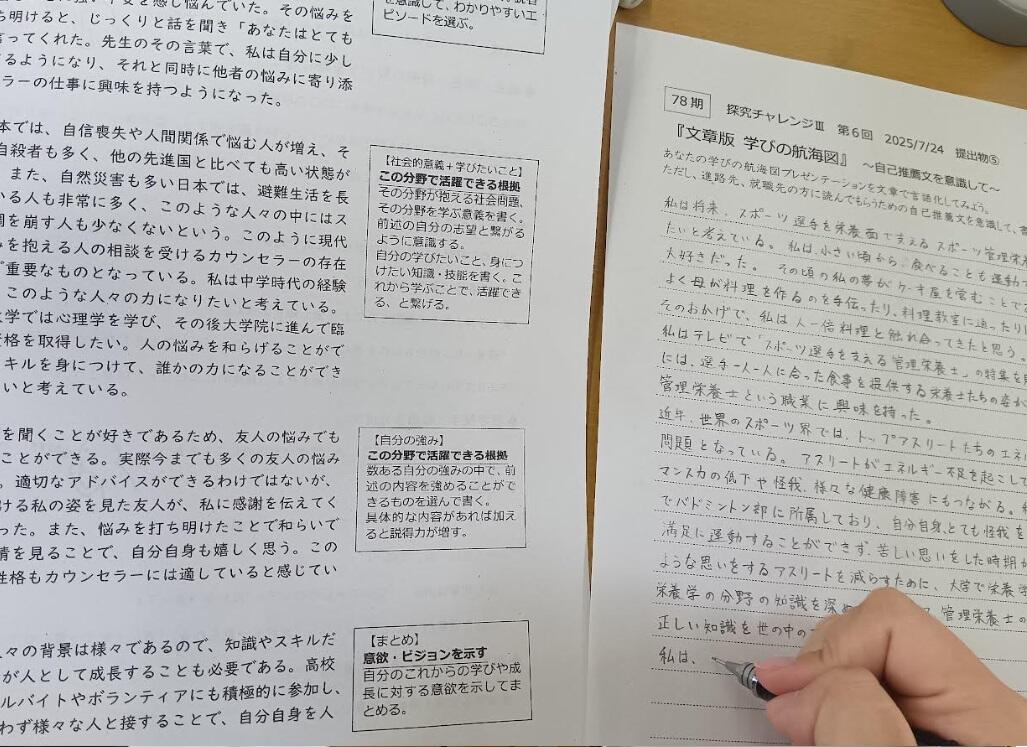 感じ悩んでいた。その悩みを
ち明けると、じっくりと話を聞き「あなたはとても
言ってくれた。先生のその言葉で、私は自分に少し
るようになり、それと同時に他者の悩みに寄り添
ラーの仕事に興味を持つようになった。
本では、自信喪失や人間関係で悩む人が増え、そ
自殺者も多く、他の先進国と比べても高い状態が
。また、自然災害も多い日本では、避難生活を長
いる人も非常に多く、このような人々の中にはス
調を崩す人も少なくないという。このように現代
みを抱える人の相談を受けるカウンセラーの存在
重要なものとなっている。私は中学時代の経験
、このような人々の力になりたいと考えている。
大学では心理学を学び、その後大学院に進んで臨
資格を取得したい。人の悩みを和らげることがで
キルを身につけて、誰かの力になることができ
いと考えている。
を聞くことが好きであるため、友人の悩みでも
ことができる。実際今までも多くの友人の悩み
。適切なアドバイスができるわけではないが、
ける私の姿を見た友人が、私に感謝を伝えてく
った。また、悩みを打ち明けたことで和らいで
情を見ることで、自分自身も嬉しく思う。この
性格もカウンセラーには適していると感じてい
々の背景は様々であるので、知識やスキルだ
が人として成長することも必要である。高校
ルバイトやボランティアにも積極的に参加し、
わず様々な人と接することで、自分自身を人
を意識して、わかりやすいエ
ピソードを選ぶ。
【社会的意義＋学びたいこと】
この分野で活躍できる根拠
その分野が抱える社会問題、
その分野を学ぶ意義を書く。
前述の自分の志望と繋がる
ように意識する。
自分の学びたいこと、身につ
けたい知識・技能を書く。こ
れから学ぶことで、活躍でき
る、と繋げる。
【自分の強み】
この分野で活躍できる根拠
数ある自分の強みの中で、前
述の内容を強めることがで
きるものを選んで書く。
具体的な内容があれば加え
ると説得力が増す。
【まとめ】
意欲・ビジョンを示す
自分のこれからの学びや成
長に対する意欲を示してま
とめる。
78期 探究チャレンジⅢ 第6回 2025/7/24 提出物⑤
『文章版 学びの航海図』 ～自己推薦文を意識して～
あなたの学びの航海図プレゼンテーションを文章で言語化してみよう。
ただし、進路先、就職先の方に読んでもらうための自己推薦文を意識して、書
私は将来、スポーツ選手を栄養面で支えるスポーツ管理栄養
たいと考えている。私は、小さい頃から、食べることも運動
大好きだった。その頃の私の夢がケーキ屋を営むことで
よく母が料理を作るのを手伝ったり、料理教室に通ったり
そのおかげで、私は人一倍料理と触れ合ってきたと思う。
私はテレビで「スポーツ選手を支える管理栄養士」の特集を
には、選手一人一人に合った食事を提供する栄養士たちの姿が
管理栄養士という職業に興味を持った。
近年、世界のスポーツ界では、トップアスリートたちのエネ
問題となっている。アスリートがエネルギー不足を起こして
マンス力の低下や怪我、様々な健康障害にもつながる。
でバドミントン部に所属しており、自分自身、とても怪我を
満足に運動することができず、苦しい思いをした時期が
ような思いをするアスリートを減らすために、大学で栄養学
栄養学の分野の知識を深め 管理栄養士の
正しい知識を世の中の
私は、